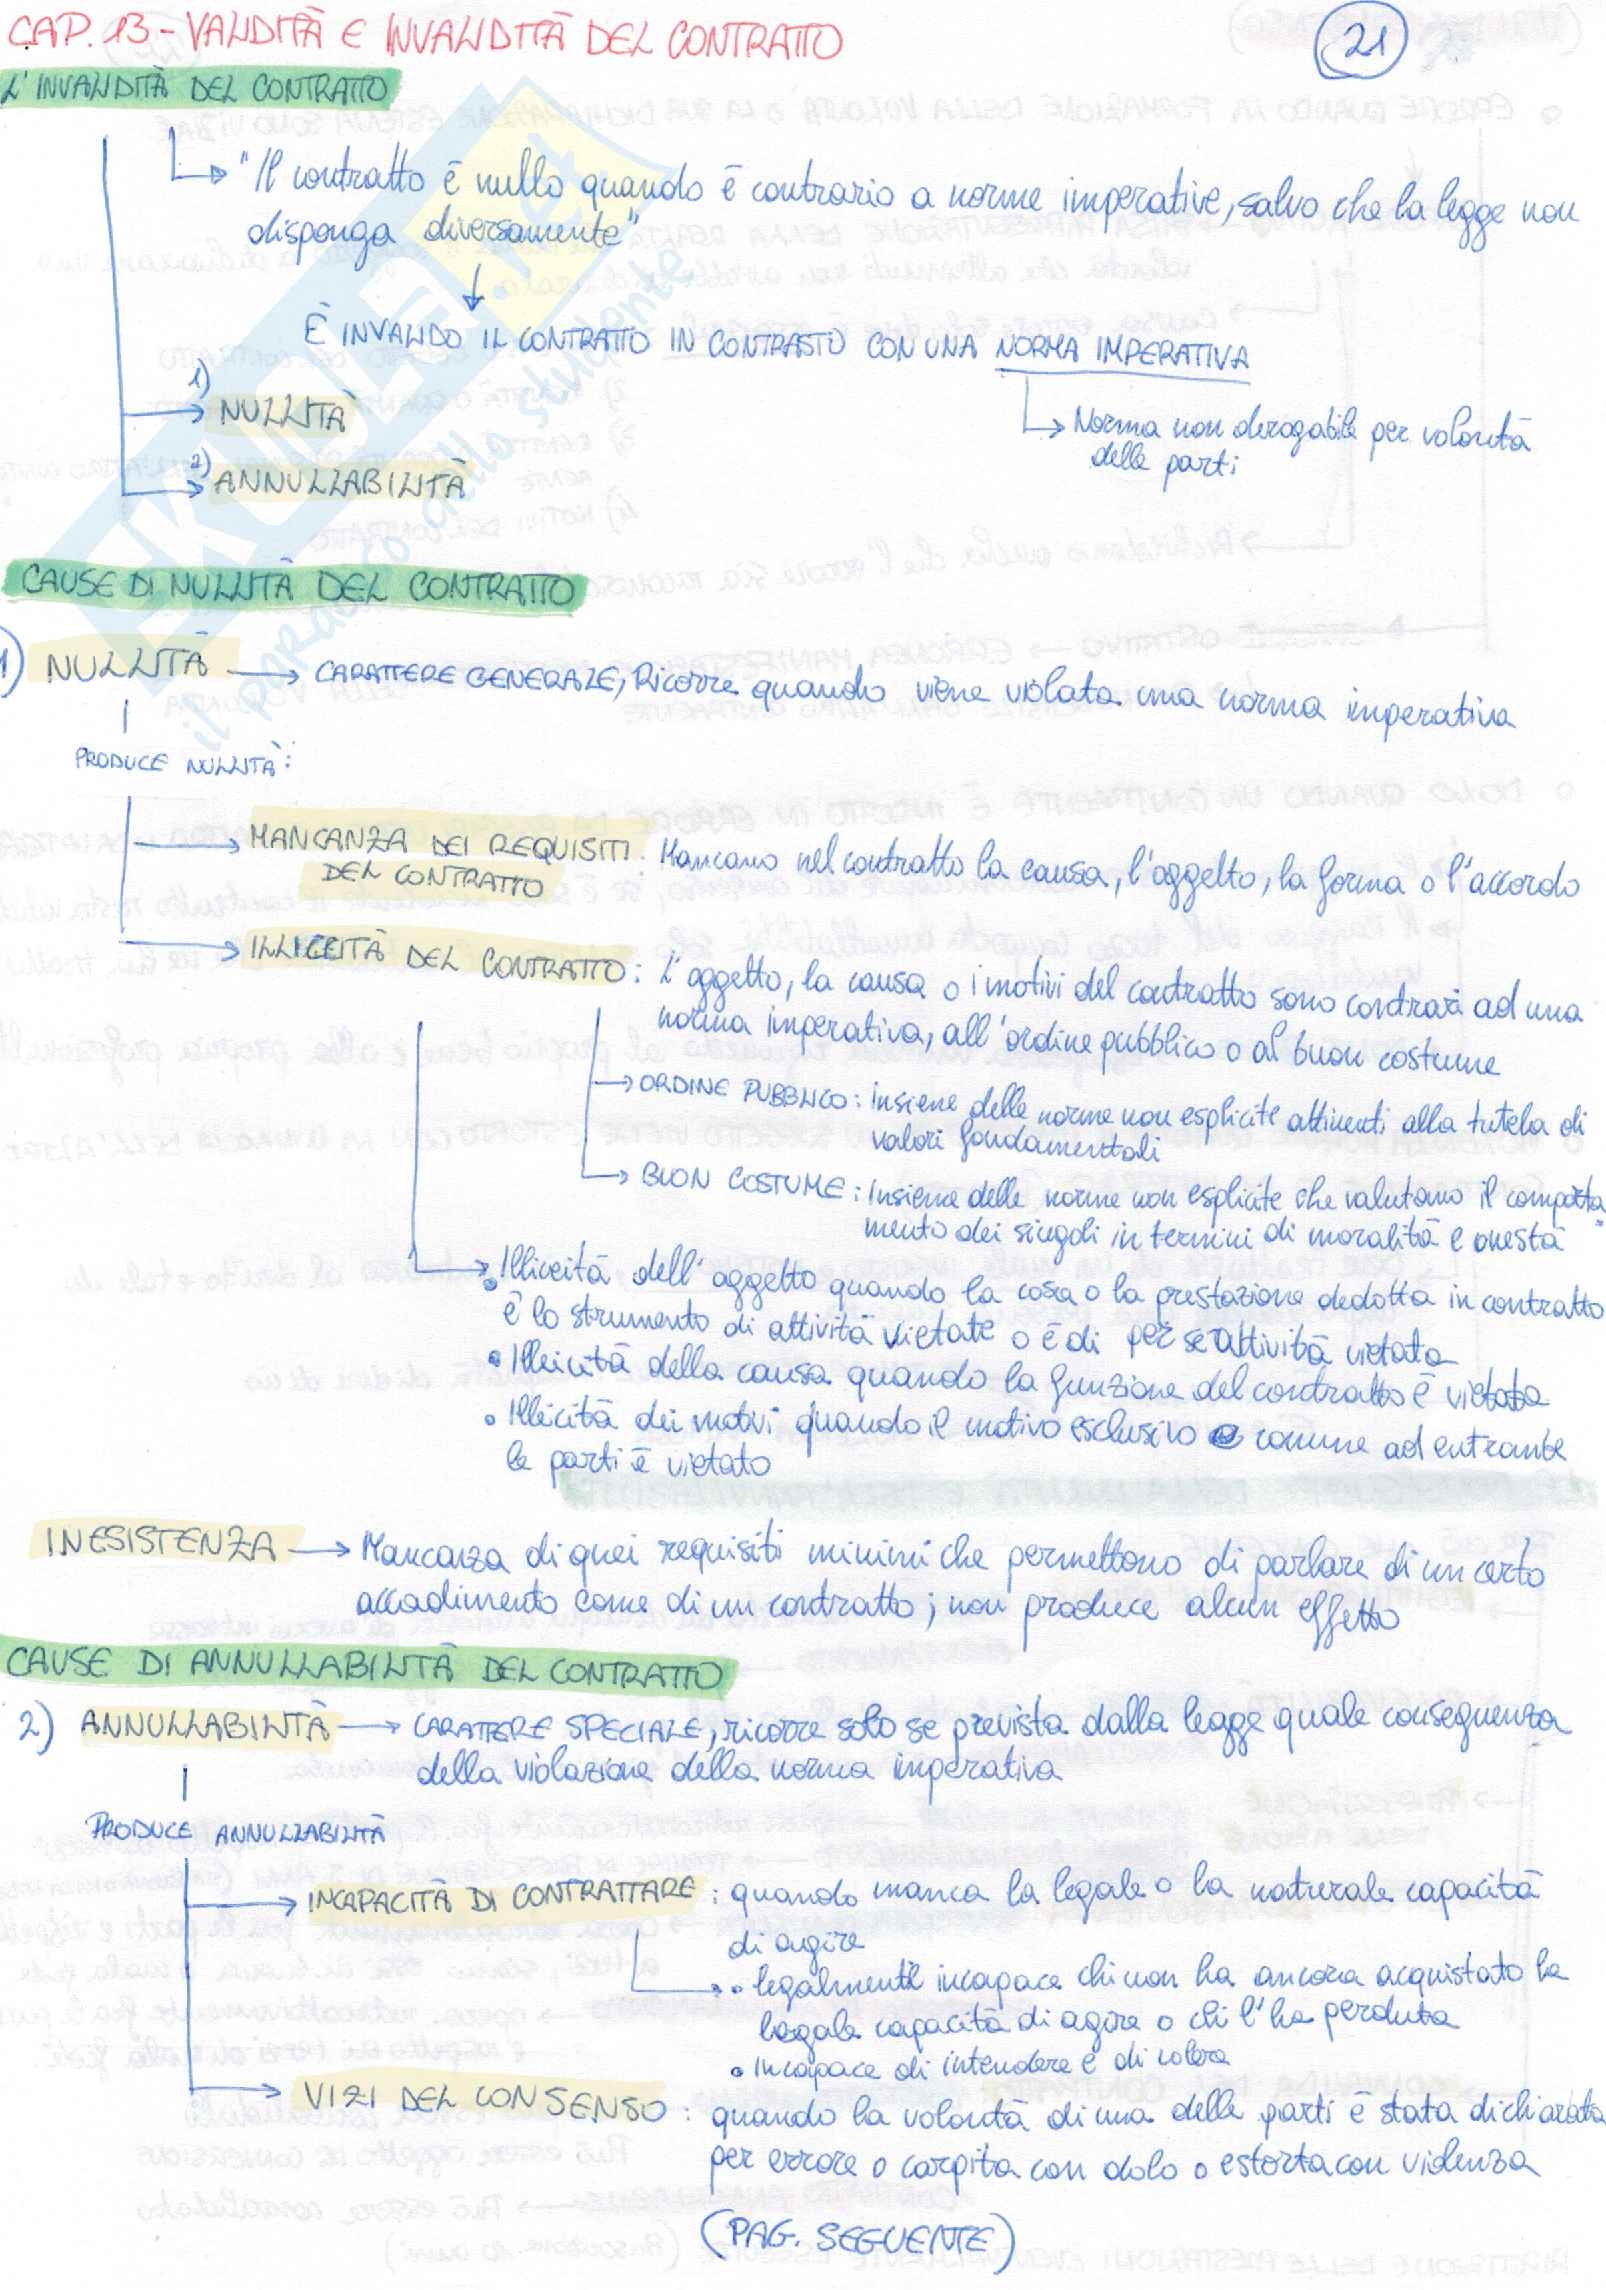 CAP. 13 - VALIDITÀ E INVALIDITÀ DEL CONTRATTO
21
L'INVALIDITÀ DEL CONTRATTO
"Il contratto è nullo quando è contrario a norme imperative, salvo che la legge non
disponga diversamente"
È INVALIDO IL CONTRATTO IN CONTRASTO CON UNA NORMA IMPERATIVA
Norma non derogabile per volontà
delle parti
1) NULLITÀ
2) ANNULLABILITÀ
CAUSE DI NULLITÀ DEL CONTRATTO
1) NULLITÀ → CARATTERE GENERALE, Ricorre quando viene violata una norma imperativa
PRODUCE NULLITÀ:
MANCANZA DEI REQUISITI DEL CONTRATTO: Mancano nel contratto la causa, l'oggetto, la forma o l'accordo
ILLICEITÀ DEL CONTRATTO: L'oggetto, la causa o i motivi del contratto sono contrari ad una
norma imperativa, all'ordine pubblico o al buon costume
ORDINE PUBBLICO: Insieme delle norme non esplicite attinenti alla tutela di
valori fondamentali
BUON COSTUME: Insieme delle norme non esplicite che valutano il comporta
mento dei singoli in termini di moralità e onestà
• Illiceità dell'oggetto quando la cosa o la prestazione dedotta in contratto
è lo strumento di attività vietate o è di per sé attività vietata
• Illiceità della causa quando la funzione del contratto è vietata
• Illiceità dei motivi quando il motivo esclusivo e comune ad entrambe
le parti è vietato
INESISTENZA → Mancanza di quei requisiti minimi che permettono di parlare di un certo
accadimento come di un contratto; non produce alcun effetto
CAUSE DI ANNULLABILITÀ DEL CONTRATTO
2) ANNULLABILITÀ → CARATTERE SPECIALE, ricorre solo se prevista dalla legge quale conseguenza
della violazione della norma imperativa
PRODUCE ANNULLABILITÀ
INCAPACITÀ DI CONTRATTARE: quando manca la legale o la naturale capacità
di agire
• legalmente incapace chi non ha ancora acquistato la
legale capacità di agire o chi l'ha perduta
• Incapace di intendere e di volere
VIZI DEL CONSENSO: quando la volontà di una delle parti è stata dichiarata
per errore o carpita con dolo o estorta con violenza
(PAG. SEGUENTE)
SKUOLA.net
il paradiso dello studente